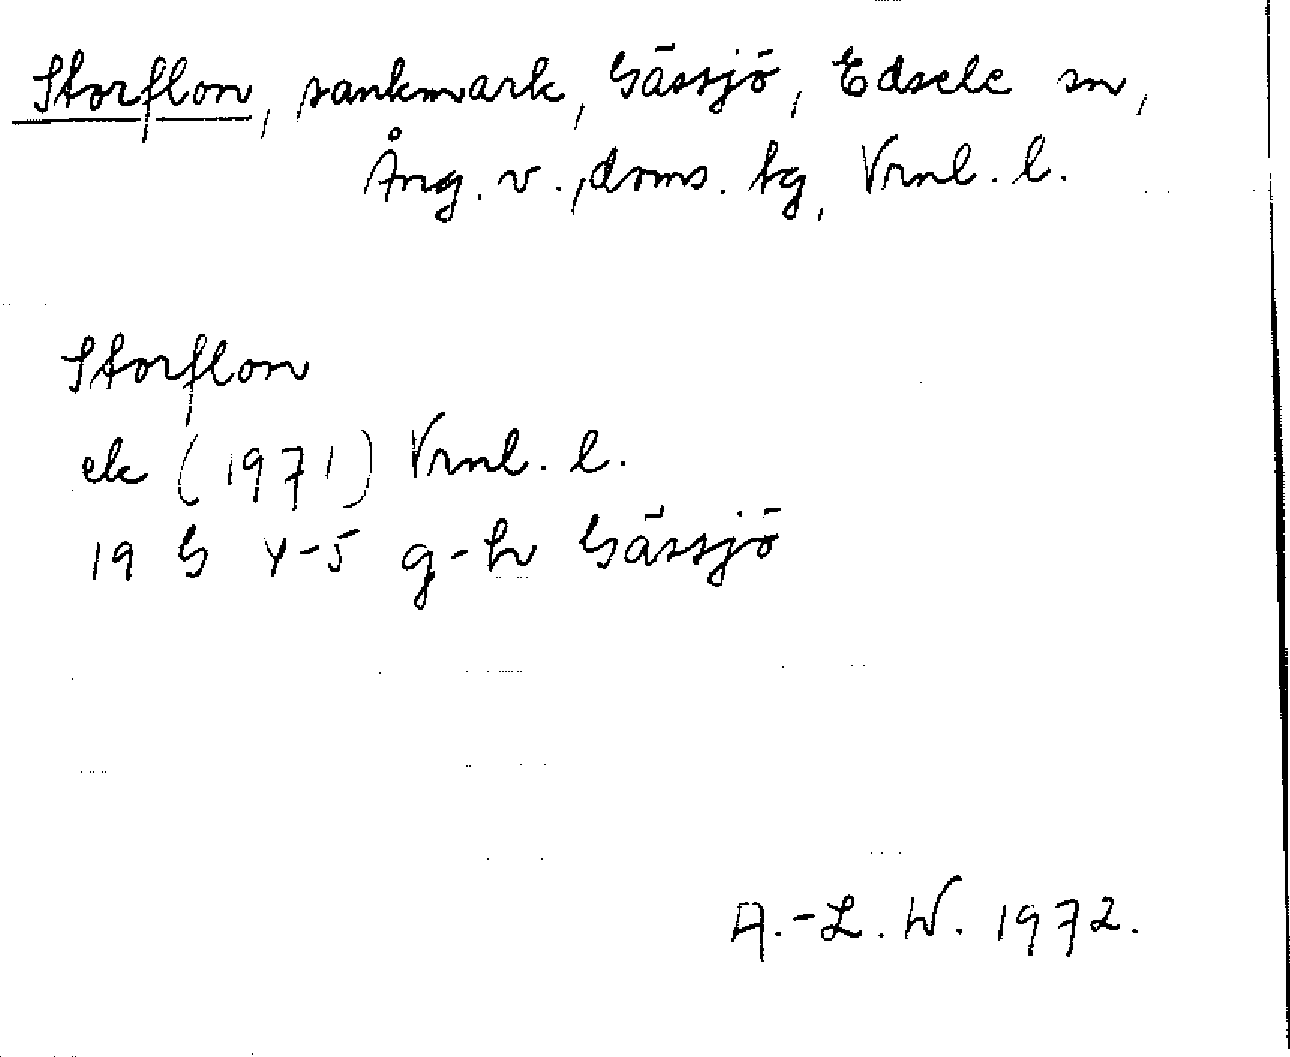 Storflon, sankmark, Gässjö, Edsele sn,
Ång. v., doms. tg, Vrnl. l.
Storflon
ek (1971) Vrnl. l.
19 G 4-5 g-h Gässjö
A.-L. W. 1972.